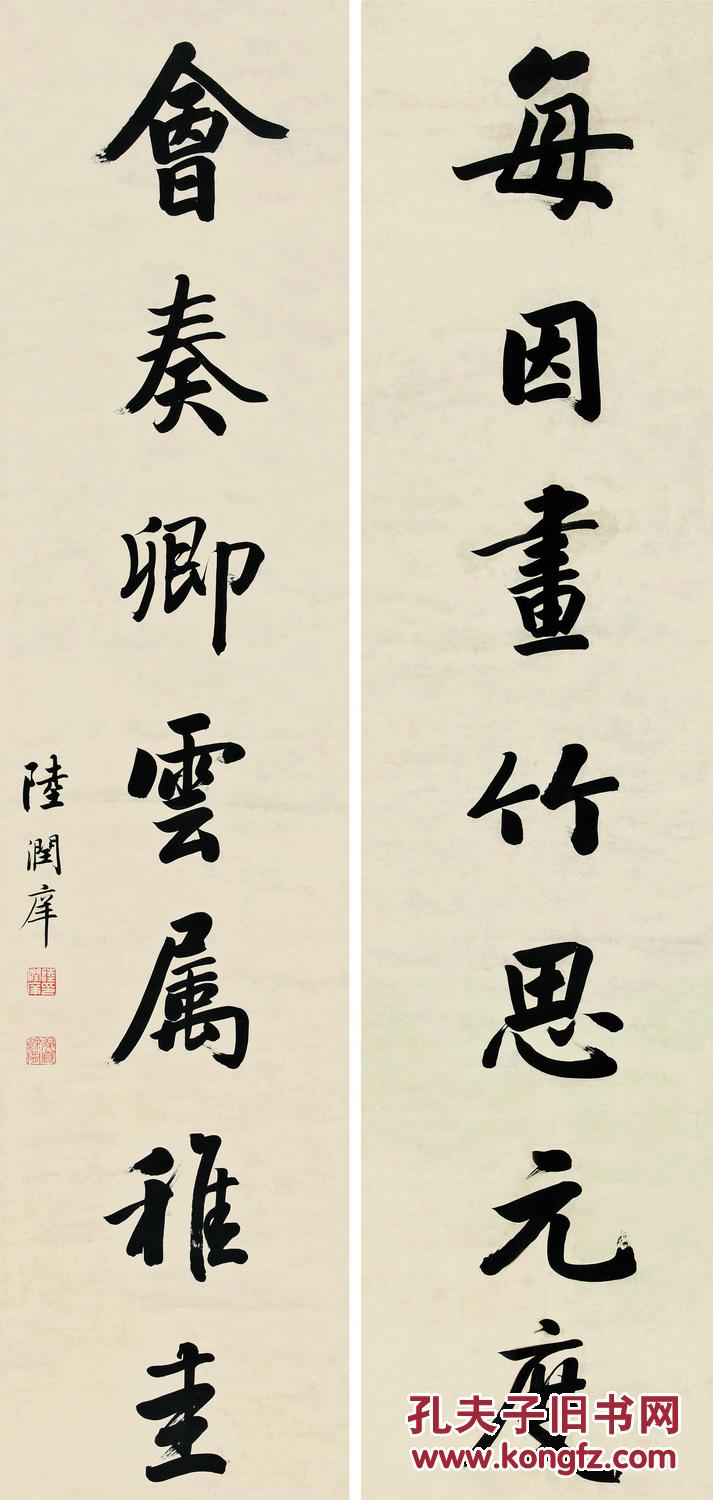 每因畫竹思元度
會奏卿雲属稚圭
陸潤庠
孔夫子旧书网
www.kongfz.com